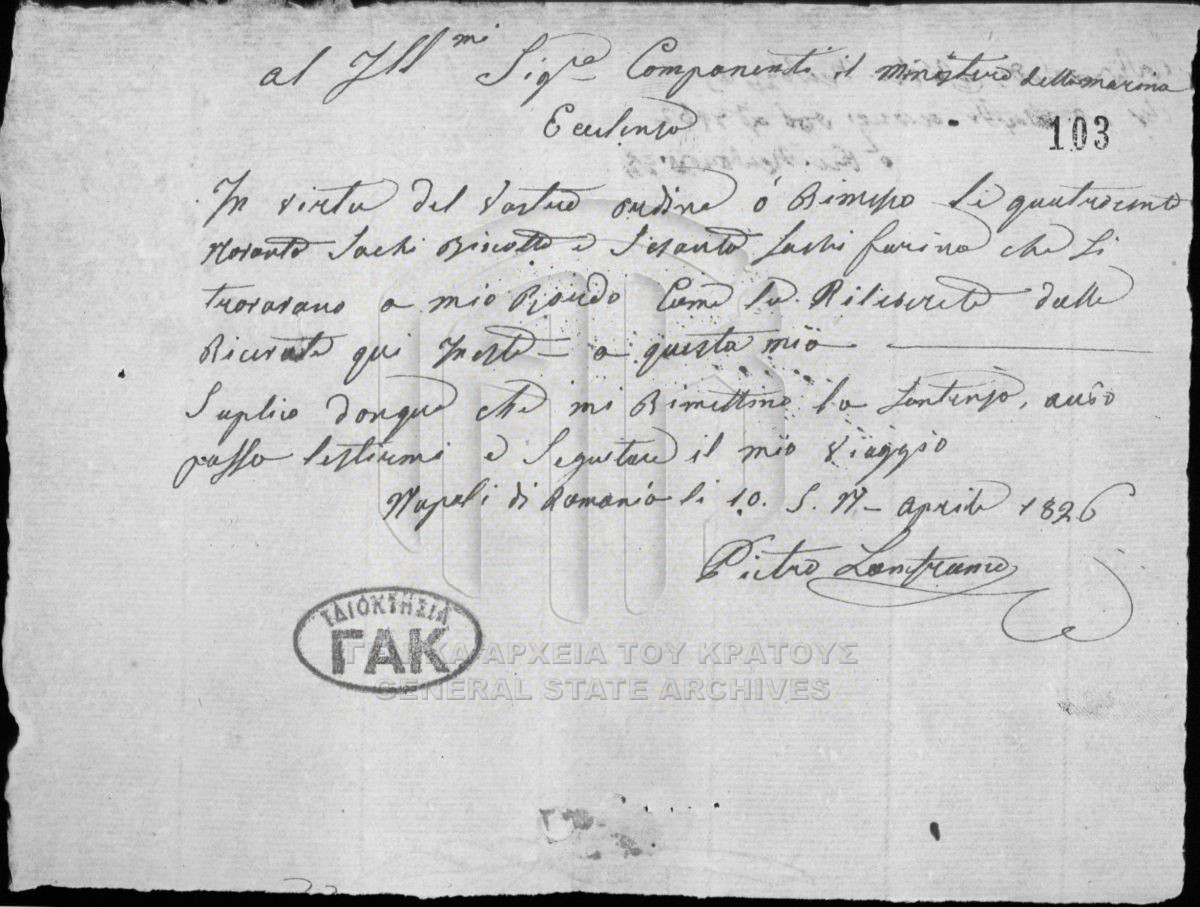 al Ill.mi Sig.re Componenti il Ministero della marina
Eccelenso
103
In virtu del Vostro ordine ó Rimesso li quatrocento
Noranta Sachi Biscotto e Sesanta Sachi farina che Si
trovavano a mio Bordo Come la Rileverete dalle
Ricevute qui Inste a questa mia
Suplico donque che mi Rimettino la Sentenso, acio
posso lestirmi e Seguitare il mio Viaggio
Napoli di Romania li 10. S. N. Aprile 1826
Pietro Lanfranco
ΙΔΙΟΚΤΗΣΙΑ
ΓΑΚ
ΓΕΝΙΚΑ ΑΡΧΕΙΑ ΤΟΥ ΚΡΑΤΟΥΣ
GENERAL STATE ARCHIVES